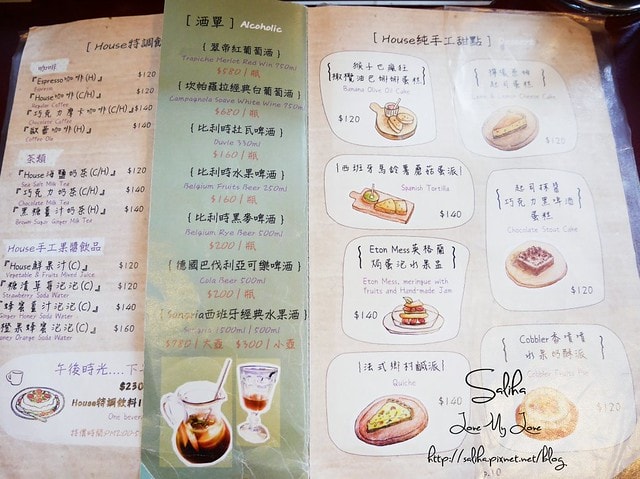 [ House特調飲
咖啡
『Espresso咖啡(H)』 $120
Espresso
『House咖啡(C/H)』 $120
Regular Coffee
『巧克力摩卡咖啡(C/H)』 $140
Chocolate Coffee
『歐蕾咖啡(H)』 $140
Coffee Ole
茶類
『House海鹽奶茶(C/H)』 $120
Sea Salt Milk Tea
『巧克力奶茶(H)』 $140
Chocolate Milk Tea
『黑糖薑汁奶茶(H)』 $140
Brown Sugar Ginger Milk Tea
House手工果醬飲品
『House鮮果汁(C)』 $120
Vegetable & Fruits Mixed Juice
『糖漬草莓泡泡(C)』 $140
Strawberry Soda Water
『蜂蜜薑汁泡泡(C)』 $140
Ginger Honey Soda Water
橙果蜂蜜泡泡(C)』 $160
Honey Orange Soda Water
午後時光....下午
$230
House特調飲料1
One beverage
[ 酒單 ] Alcoholic
{ 翠帝紅葡萄酒 }
Trapiche Merlot Red Win 750ml
$580 | 瓶
{ 坎帕羅拉經典白葡萄酒 }
Campagnola Soave White Wine 750ml
$680 | 瓶
{ 比利時杜瓦啤酒 }
Duvle 330ml
$160 | 瓶
{ 比利時水果啤酒 }
Belgium Fruits Beer 250ml
$160 | 瓶
{ 比利時黑麥啤酒 }
Belgium Rye Beer 500ml
$200 | 瓶
{ 德國巴伐利亞可樂啤酒 }
Cola Beer 500ml
$200 | 瓶
{ Sangria西班牙經典水果酒 }
Sangria 1500ml | 500ml
$780 | 大壺 $300 | 小壺
[ House純手工甜點 ]
猴子也瘋狂
橄欖油巴娜娜蛋糕
Banana Olive Oil Cake
$120
起司蛋糕
Cheese Cake
$120
西班牙馬鈴薯蘑菇蛋派
Spanish Tortilla
$140
巧克力黑啤酒
蛋糕
Chocolate Stout Cake
$120
Eton Mess英格蘭
焗蛋泡水果盅
Eton Mess, meringue with
Fruits and Hand-made Jam
$140
法式鄉村鹹派
Quiche
$140
Cobbler香噴噴
水果奶酥派
Cobbler Fruits Pie
$120
Saliha
Love My Love
http://saliha.pixnet.net/blog